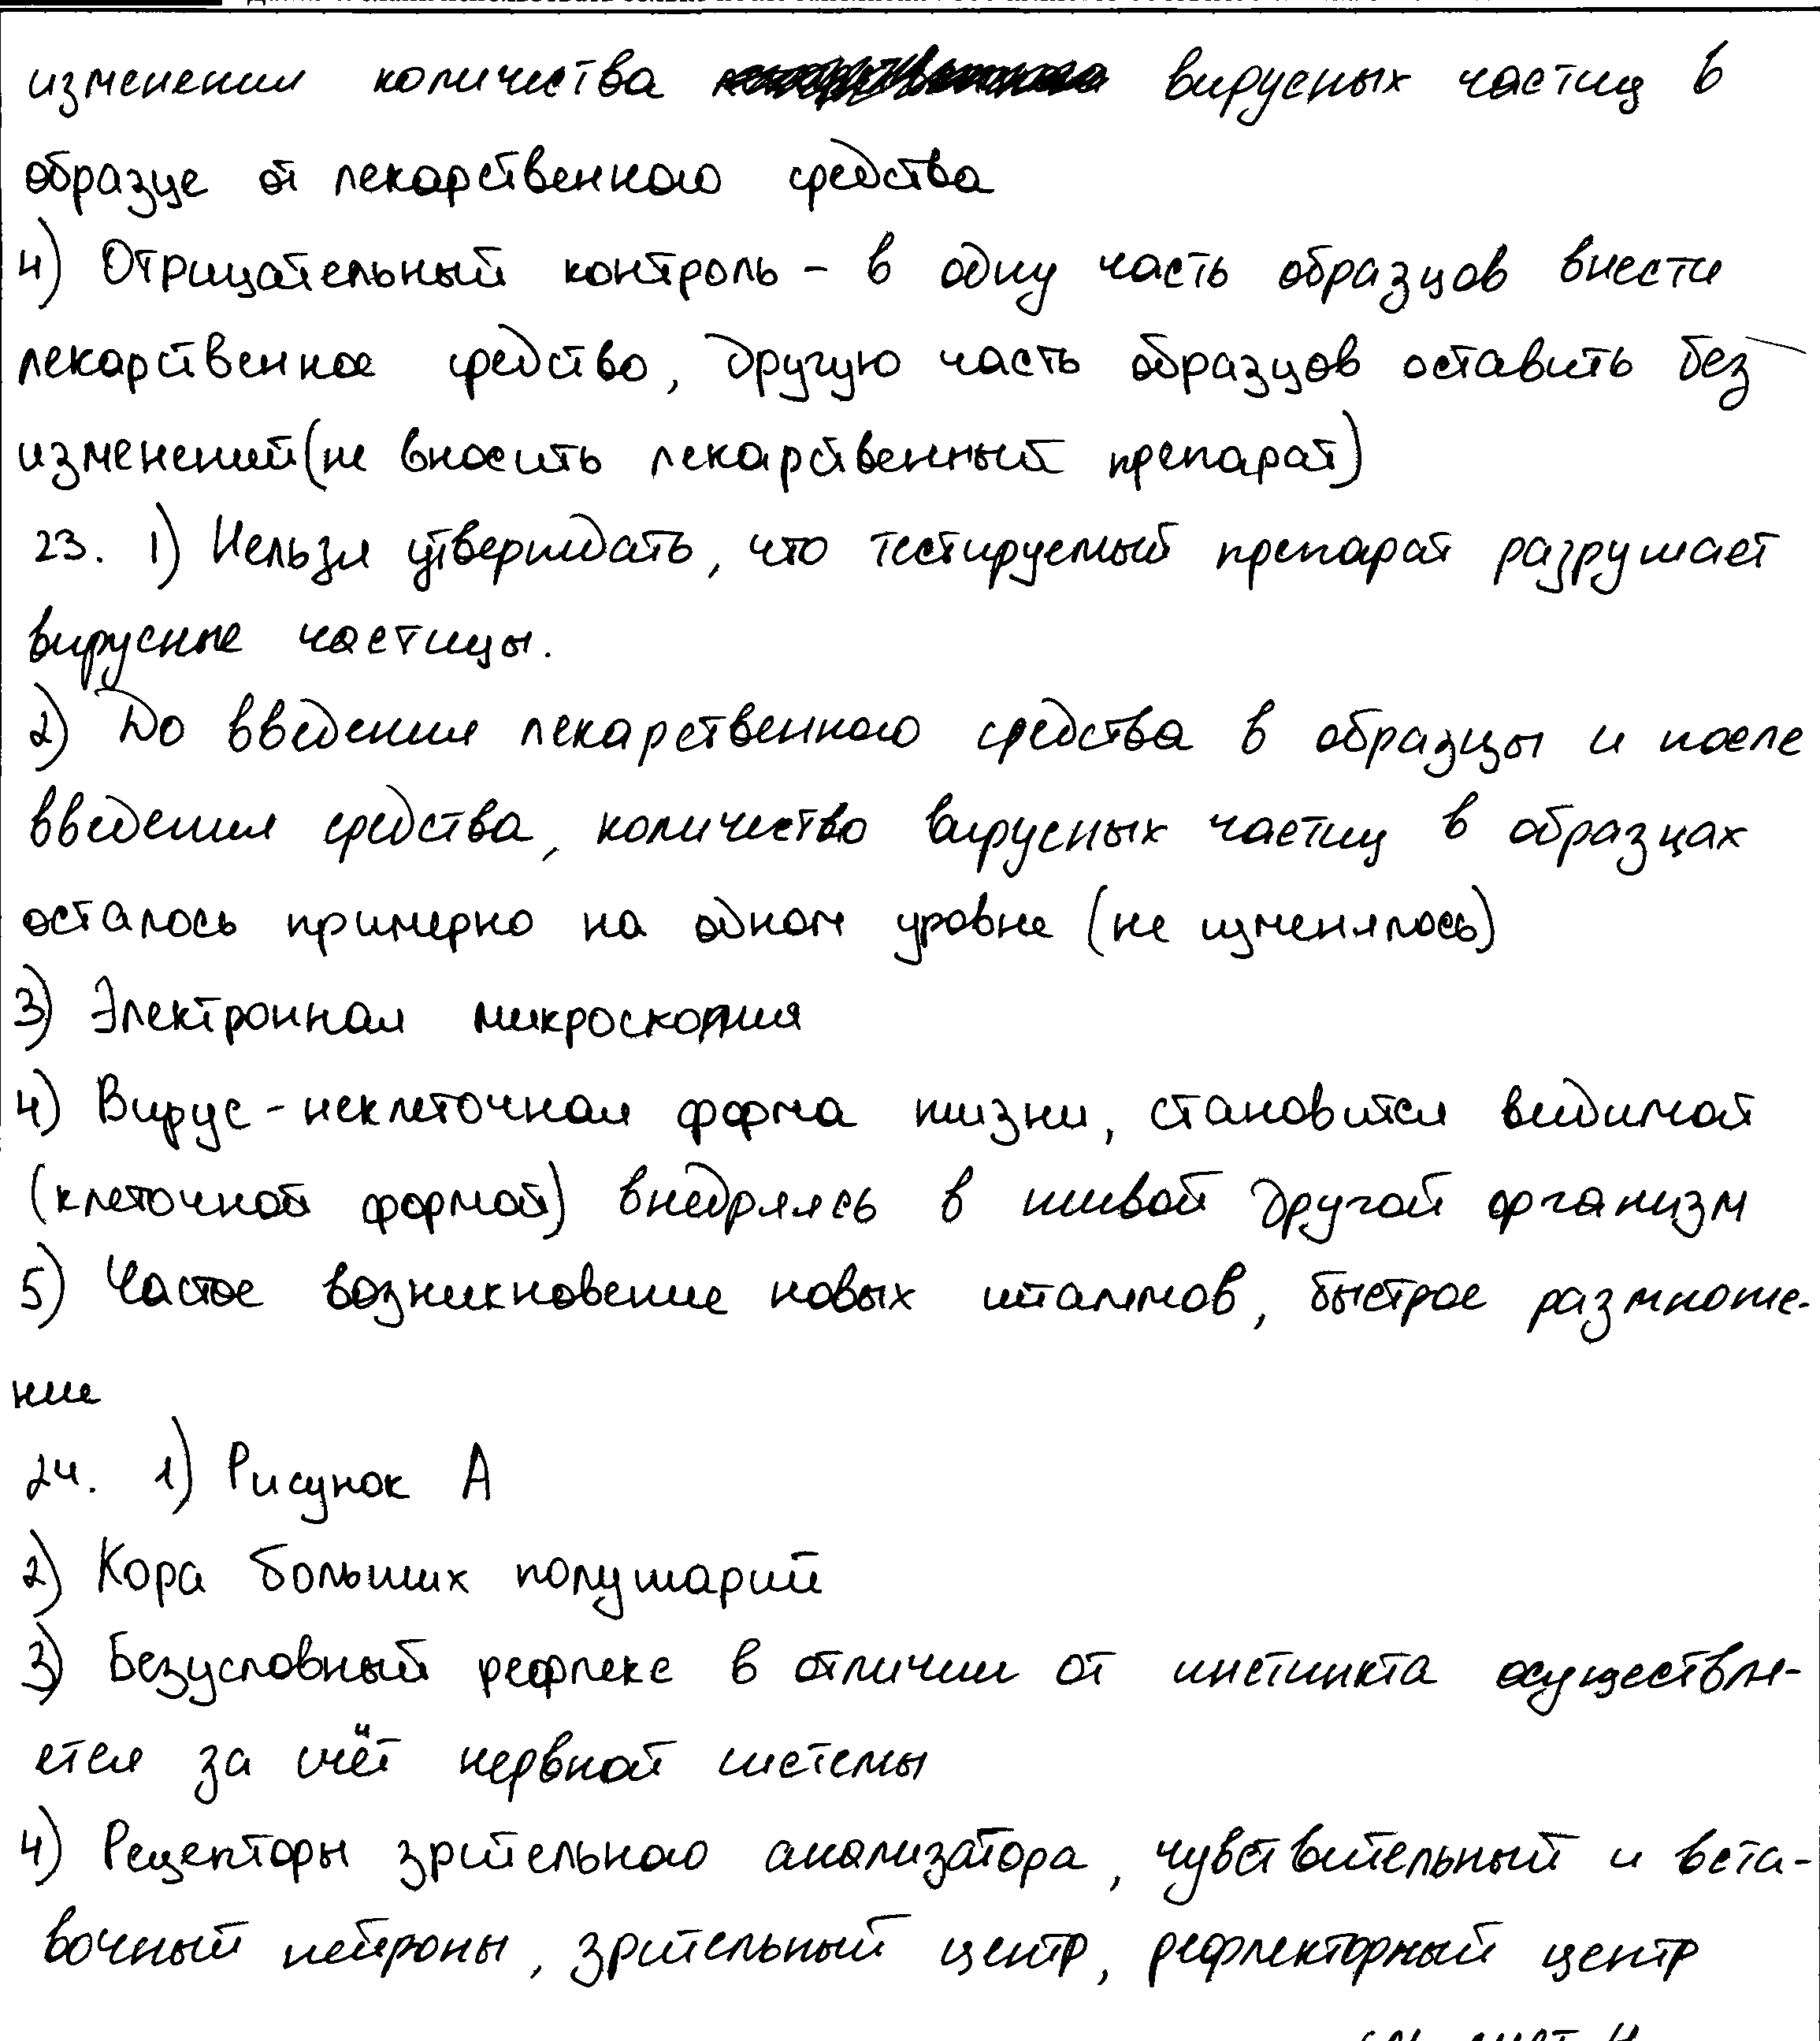 изменении количества вирусных частиц в
образце от лекарственного средства
4) Отрицательный контроль - в одну часть образцов внести
лекарственное средство, другую часть образцов оставить без
изменений (не вносить лекарственный препарат)
23. 1) Нельзя утверждать, что тестируемый препарат разрушает
вирусные частицы.
2) До введения лекарственного средства в образцы и после
введения средства, количество вирусных частиц в образцах
осталось примерно на одном уровне (не изменялось)
3) Электронная микроскопия
4) Вирус - неклеточная форма жизни, становится видимой
(клеточной формой) внедряясь в живой другой организм
5) Частое возникновение новых штаммов, быстрое размноже-
ние
24. 1) Рисунок А
2) Кора больших полушарий
3) Безусловный рефлекс в отличии от инстинкта осуществля-
ется за счёт нервной системы
4) Рецепторы зрительного анализатора, чувствительный и вста-
вочный нейроны, зрительный центр, рефлекторный центр